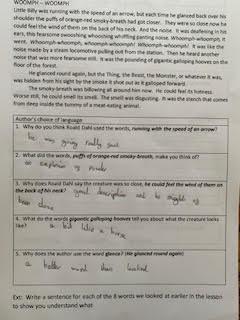 WOOMPH – WOOMPH
Little Billy was running with the speed of an arrow, but each time he glanced back over his
shoulder the puffs of orange-red smoky-breath had got closer. They were so close now he
could feel the wind of them on the back of his neck. And the noise. It was deafening in his
ears, this fearsome swooshing whooshing whiffling panting noise. Whoomph-whoomph, it
went. Whoomph-whoomph, whoomph-whoomph! Whoomph-whoomph! It was like the
noise made by a steam locomotive pulling out from the station. Then he heard another
noise that was more fearsome still. It was the pounding of gigantic galloping hooves on the
floor of the forest.
He glanced round again, but the Thing, the Beast, the Monster, or whatever it was,
was hidden from his sight by the smoke it shot out as it galloped forward.
The smoky-breath was billowing all around him now. He could feel its hotness.
Worse still, he could smell its smell. The smell was disgusting. It was the stench that comes
from deep inside the tummy of a meat-eating animal.
Author's choice of language
1. Why do you think Roald Dahl used the words, running with the speed of an arrow?
he was going really fast
2. What did the words, puffs of orange-red smoky-breath, make you think of?
an explosion of
3. Why does Roald Dahl say the creature was so close, he could feel the wind of them on
the back of his neck? good description and he might of
been close
4. What do the words gigantic galloping hooves tell you about what the creature looks
like? a bit like a horse
5. Why does the author use the word glance? (He glanced round again)
a better word than looked
Ext: Write a sentence for each of the 8 words we looked at earlier in the lesson
to show you understand what